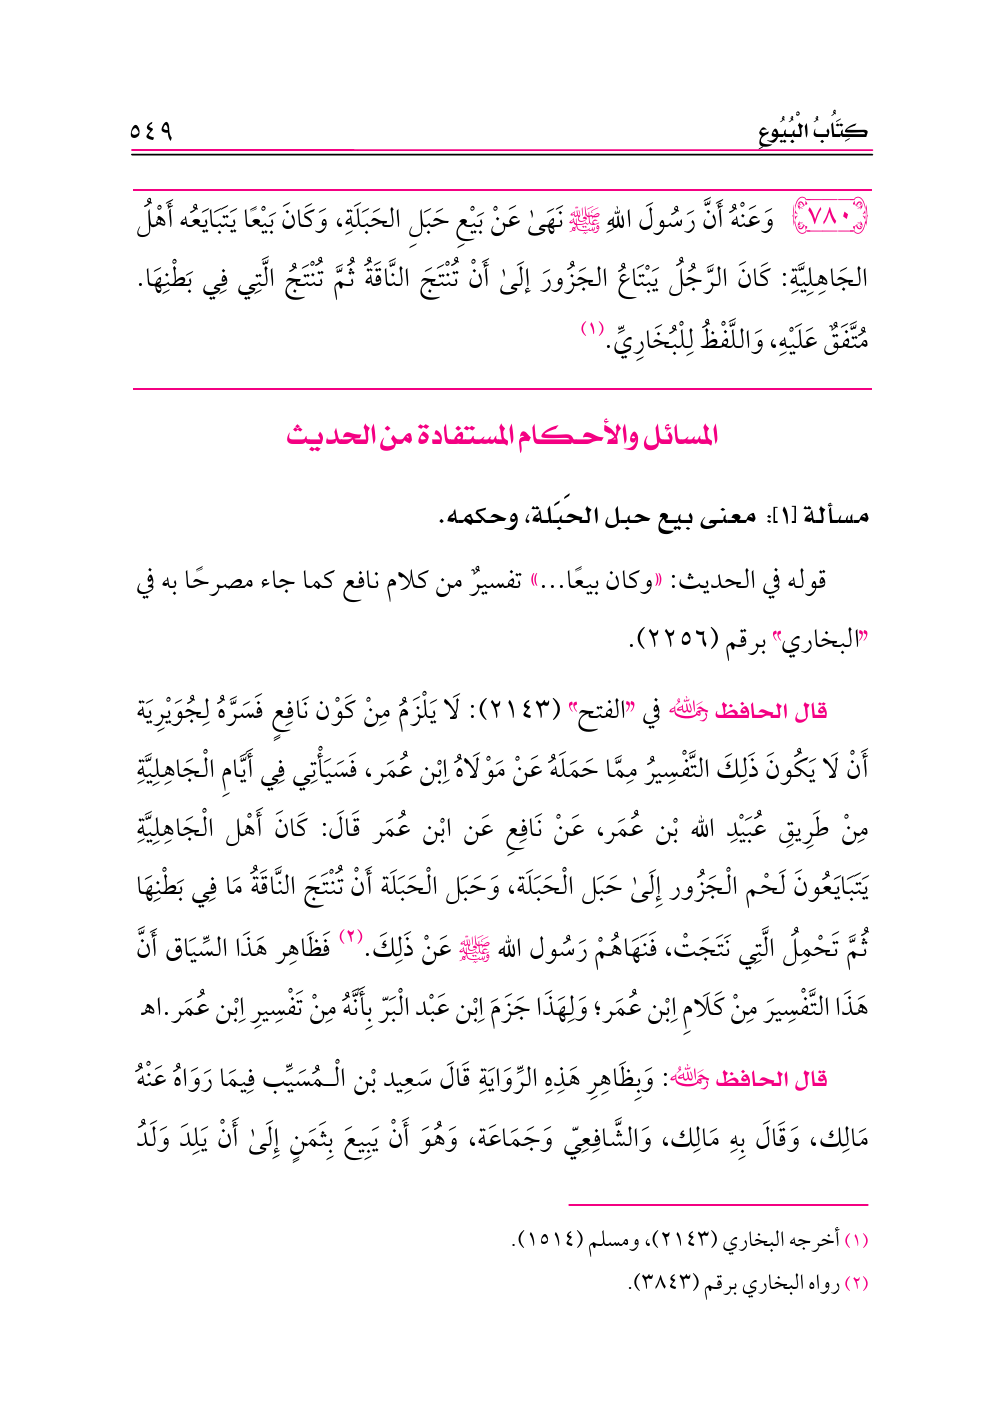 كِتَابُ الْبُيُوعِ
٥٤٩
٧٨٠ وَعَنْهُ أَنَّ رَسُولَ اللهِ ﷺ نَهَىٰ عَنْ بَيْعِ حَبَلِ الحَبَلَةِ، وَكَانَ بَيْعًا يَتَبَايَعُه أَهْلُ
الجَاهِلِيَّةِ: كَانَ الرَّجُلُ يَبْتَاعُ الجَزُورَ إلَىٰ أَنْ تُنْتَجَ النَّاقَةُ ثُمَّ تُنْتَجُ الَّتِي فِي بَطْنِهَا.
مُتَّفَقٌ عَلَيْهِ، وَاللَّفْظُ لِلْبُخَارِيِّ.(١)
المسائل والأحكام المستفادة من الحديث
مسألة [١]: معنى بيع حبل الحَبَلة، وحكمه.
قوله في الحديث: «وكان بيعًا...» تفسيرٌ من كلام نافع كما جاء مصرحًا به في
"البخاري" برقم (٢٢٥٦).
قال الحافظ رحمه الله في "الفتح" (٢١٤٣): لَا يَلْزَمُ مِنْ كَوْن نَافِعٍ فَسَرَّهُ لِجُوَيْرِيَة
أَنْ لَا يَكُونَ ذَلِكَ التَّفْسِيرُ مِمَّا حَمَلَهُ عَنْ مَوْلَاهُ اِبْن عُمَر، فَسَيَأْتِي فِي أَيَّامِ الْجَاهِلِيَّةِ
مِنْ طَرِيقِ عُبَيْدِ الله بْن عُمَر، عَنْ نَافِعٍ عَن ابْن عُمَر قَالَ: كَانَ أَهْل الْجَاهِلِيَّةِ
يَتَبَايَعُونَ لَحْم الْجَزُور إِلَىٰ حَبَل الْحَبَلَة، وَحَبَل الْحَبَلَة أَنْ تُنْتَجَ النَّاقَةُ مَا فِي بَطْنِهَا
ثُمَّ تَحْمِلُ الَّتِي نَتَجَتْ، فَنَهَاهُمْ رَسُول الله ﷺ عَنْ ذَلِكَ.(٢) فَظَاهِر هَذَا السِّيَاق أَنَّ
هَذَا التَّفْسِيرَ مِنْ كَلَامِ اِبْن عُمَر؛ وَلِهَذَا جَزَمَ اِبْن عَبْد الْبَرّ بِأَنَّهُ مِنْ تَفْسِيرِ اِبْن عُمَر.اهـ
قال الحافظ رحمه الله: وَبِظَاهِرِ هَذِهِ الرِّوَايَةِ قَالَ سَعِيد بْن الْـمُسَيِّب فِيمَا رَوَاهُ عَنْهُ
مَالِك، وَقَالَ بِهِ مَالِك، وَالشَّافِعِيّ وَجَمَاعَة، وَهُوَ أَنْ يَبِيعَ بِثَمَنٍ إِلَىٰ أَنْ يَلِدَ وَلَدُ
(١) أخرجه البخاري (٢١٤٣)، ومسلم (١٥١٤).
(٢) رواه البخاري برقم (٣٨٤٣).